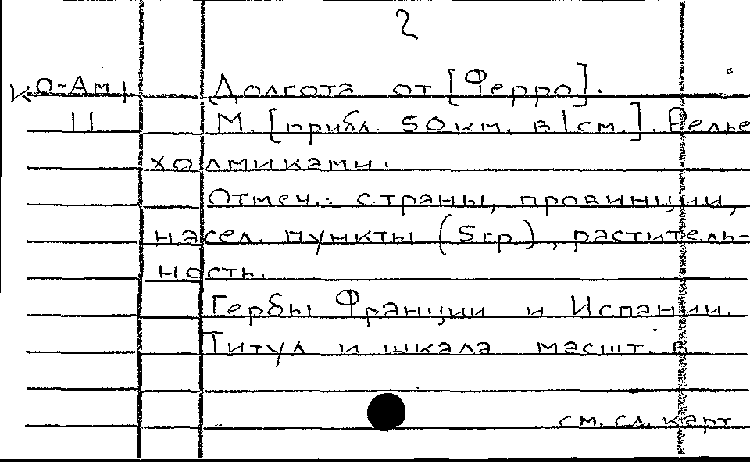 2
Ко-Ам Долгота от [Ферро].
11 М. [прибл. 50 км. в 1 см.]. Релье
холмиками.
Отмеч.: страны, провинции,
насел. пункты (5 гр.), раститель-
ность.
Гербы Франции и Испании.
Титул и шкала масшт. в
см. сл. карт